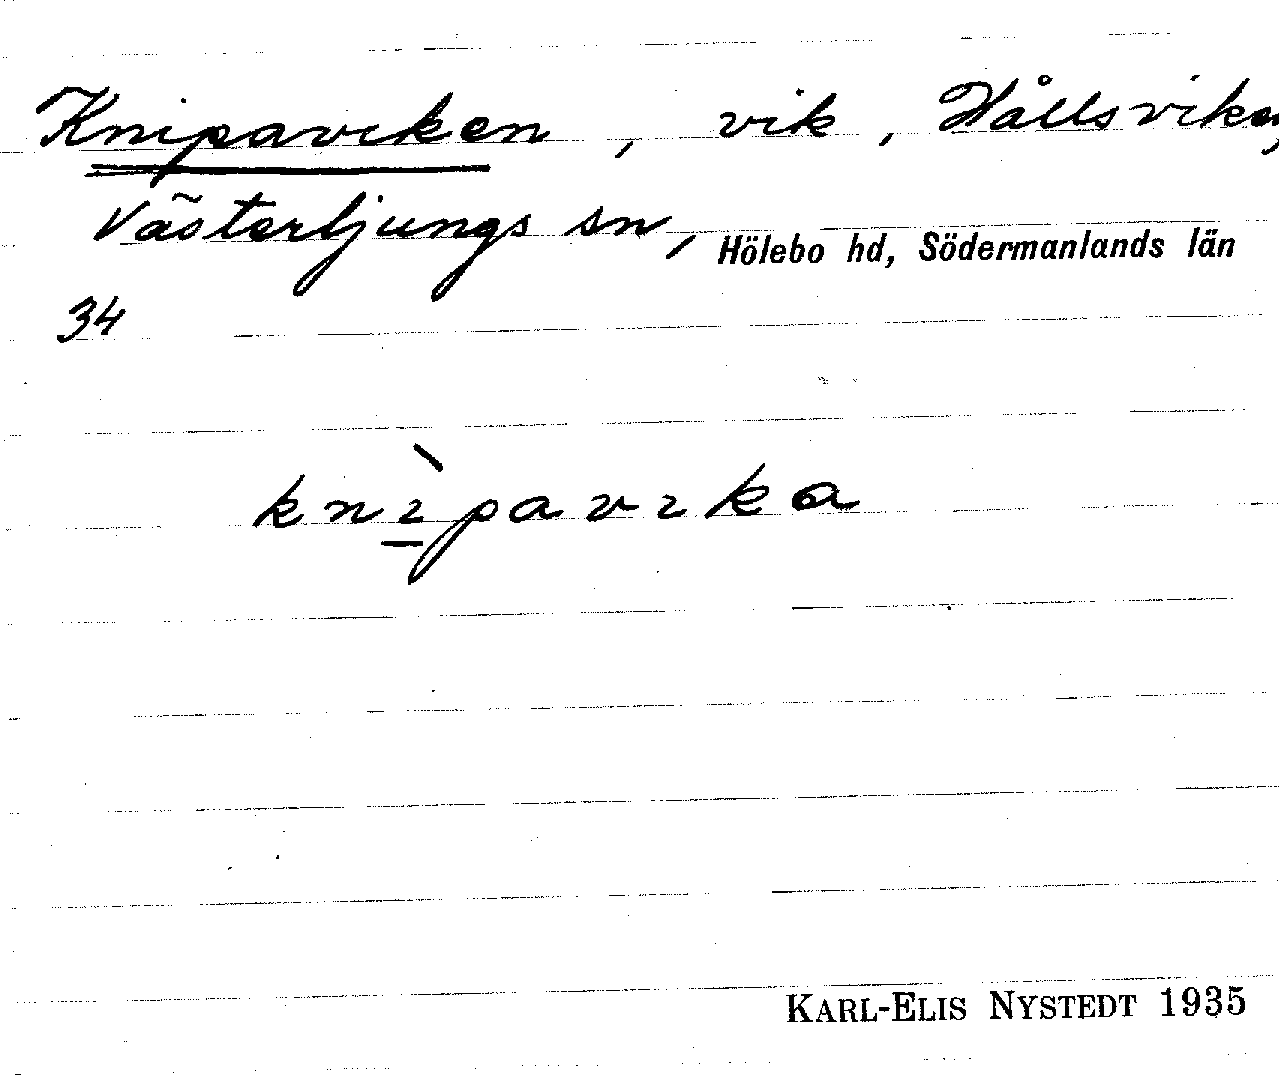 Knipaviken, vik, Hållsviken,
Västerljungs sn, Hölebo hd, Södermanlands län
34
knìpavika
KARL-ELIS NYSTEDT 1935